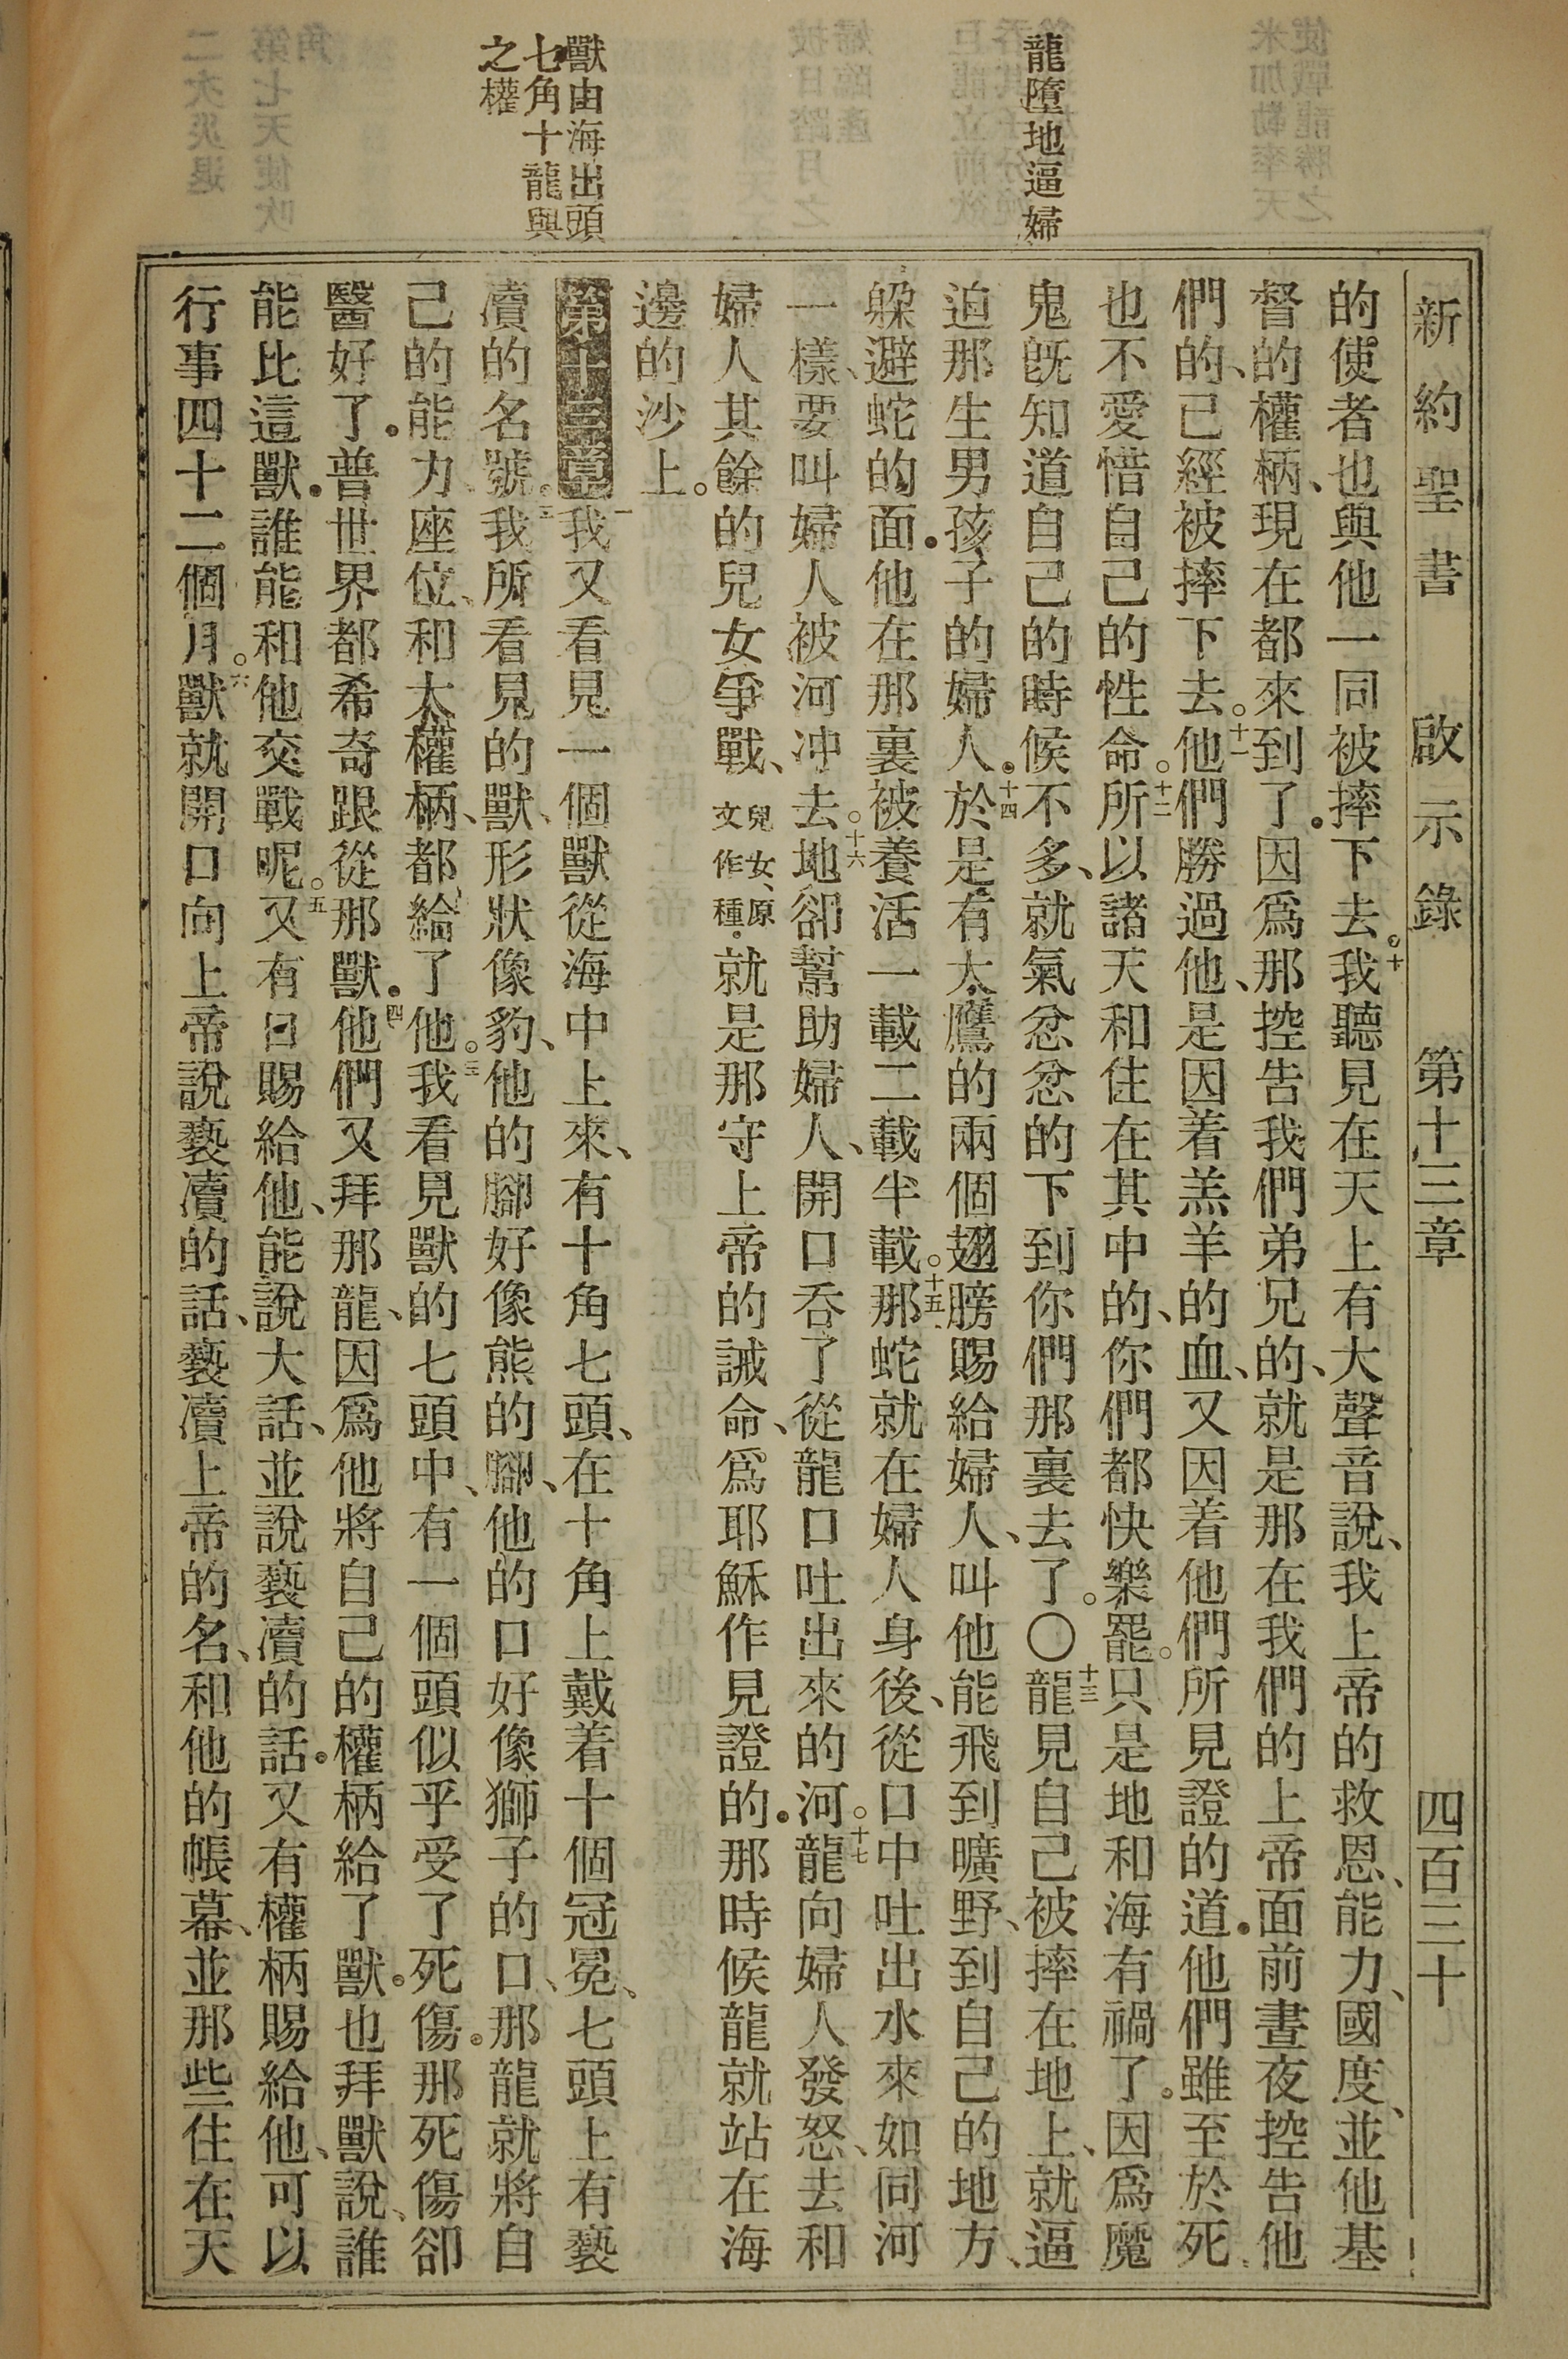 龍墮地逼婦
獸由海出頭
七角十龍與
之權
新約聖書 啟示錄 第十三章 四百三十
的使者也與他一同被摔下去。十我聽見在天上有大聲音說、我上帝的救恩、能力、國度、並他基
督的權柄、現在都來到了．因爲那控告我們弟兄的、就是那在我們的上帝面前晝夜控告他
們的、已經被摔下去。十一他們勝過他、是因着羔羊的血、又因着他們所見證的道．他們雖至於死、
也不愛惜自己的性命。十二所以諸天和住在其中的、你們都快樂罷。只是地和海有禍了。因爲魔
鬼旣知道自己的時候不多、就氣忿忿的下到你們那裏去了。〇十三龍見自己被摔在地上、就逼
迫那生男孩子的婦人。十四於是有大鷹的兩個翅膀賜給婦人、叫他能飛到曠野、到自己的地方、
躱避蛇的面．他在那裏被養活一載二載半載。十五那蛇就在婦人身後、從口中吐出水來如同河
一樣、要叫婦人被河冲去。十六地卻幫助婦人、開口吞了從龍口吐出來的河。十七龍向婦人發怒、去和
婦人其餘的兒女爭戰、兒女、原文作種．就是那守上帝的誡命、爲耶穌作見證的．那時候龍就站在海
邊的沙上。
第十三章 一我又看見一個獸從海中上來、有十角七頭、在十角上戴着十個冠冕、七頭上有褻
瀆的名號。二我所看見的獸、形狀像豹、他的腳好像熊的腳、他的口好像獅子的口、那龍就將自
己的能力、座位、和大權柄、都給了他。三我看見獸的七頭中、有一個頭似乎受了死傷。那死傷卻
醫好了．普世界都希奇跟從那獸．四他們又拜那龍、因爲他將自己的權柄給了獸。也拜獸說、誰
能比這獸．誰能和他交戰呢。五又有口賜給他、能說大話、並說褻瀆的話．又有權柄賜給他、可以
行事四十二個月。六獸就開口向上帝說褻瀆的話、褻瀆上帝的名、和他的帳幕、並那些住在天